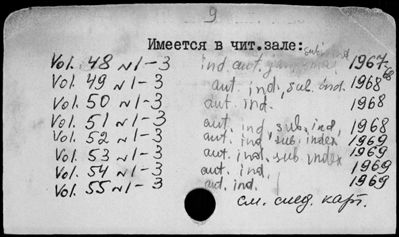 9
Имеется в чит.зале:
Vol. 48 N 1-3 ind. aut. 1967
Vol. 49 N 1-3 aut. ind., sub. ind. 1968
Vol. 50 N 1-3 aut. ind. 1968
Vol. 51 N 1-3 aut. ind. sub. ind. 1968
Vol. 52 N 1-3 aut. ind. sub. index 1969
Vol. 53 N 1-3 aut. ind. sub index 1969
Vol. 54 N 1-3 aut. ind. 1969
Vol. 55 N 1-3 aut. ind. 1969
см. след. карт.